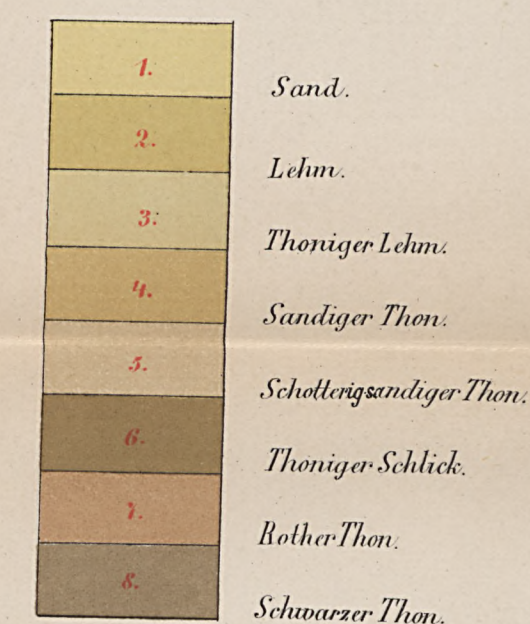 1. Sand.
2. Lehm.
3. Thoniger Lehm.
4. Sandiger Thon.
5. Schotterig-sandiger Thon.
6. Thoniger Schlick.
7. Rother Thon.
8. Schwarzer Thon.